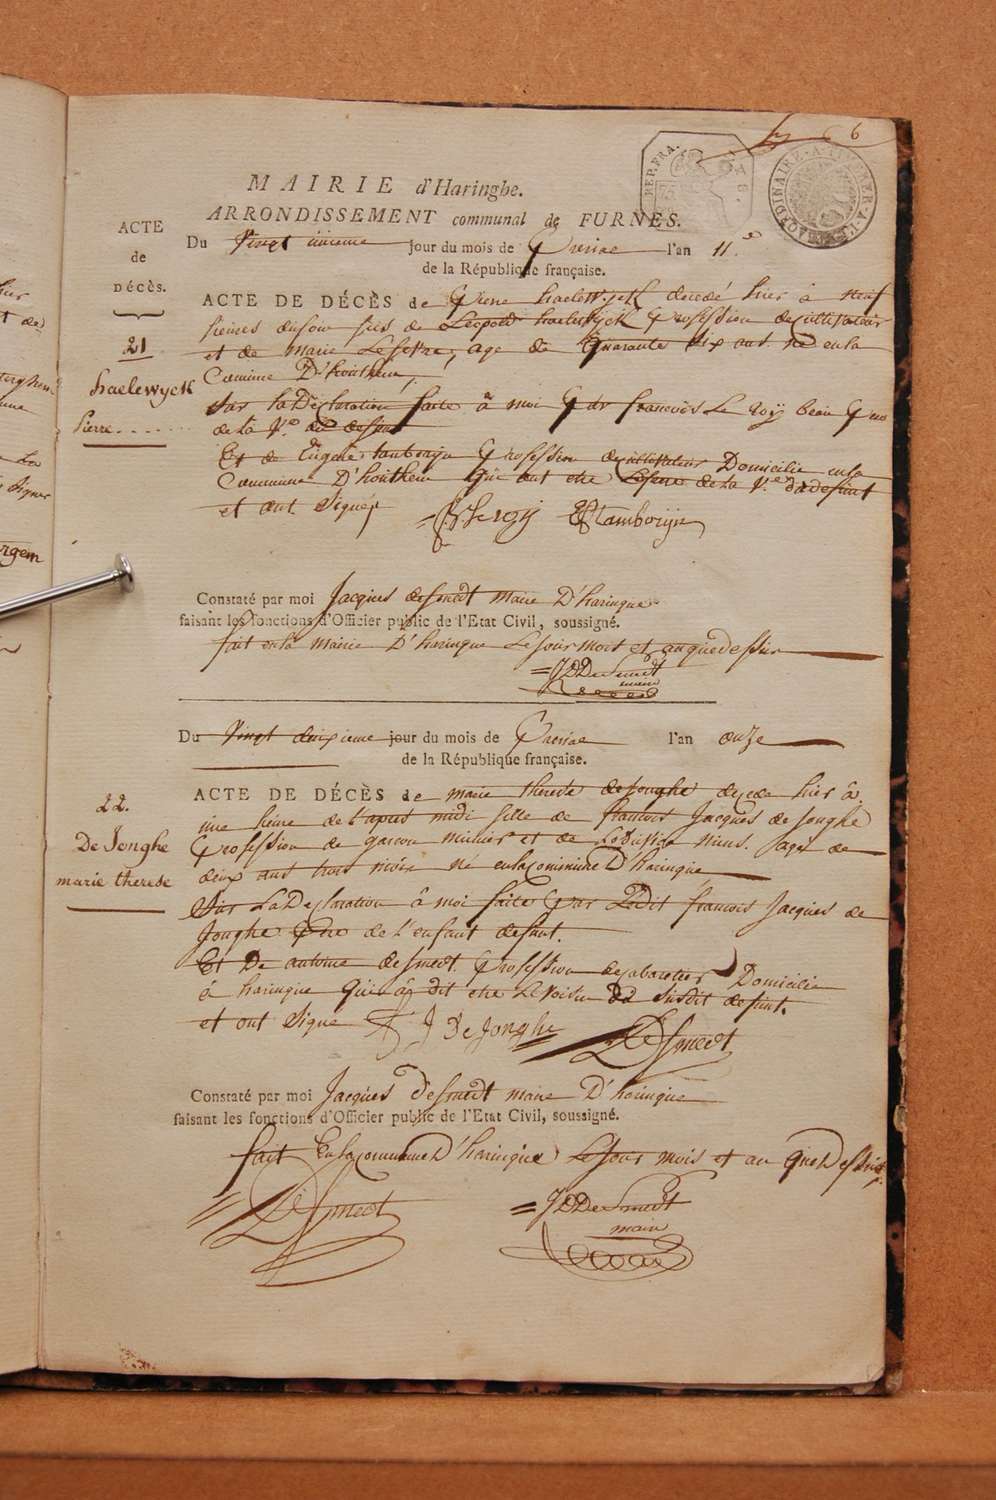 6
REP. FRA.
MAIRIE d'Haringhe.
ARRONDISSEMENT communal de FURNES.
ACTE
de
DÉCÈS.
Du Vingt unieme jour du mois de Preriae l'an 11.e
de la République française.
21
haelewyck
Pierre
ACTE DE DÉCÈS de Pierre haelewyck decedé hier à neuf
heures dusoir fils de Leopold haelewyck Profession de cultivateur
et de marie Lefevre, age de quarante dix ans. né en la
Comune D'houthem,
Sur la Déclaration faite à moi Par francois Le roy beau Pere
de la V.e du defunt
Et de Eugene tamboryn Profession de cultivateur Domicilie en la
Commune D'houthem qui ont etre de la V.e du defunt
et ont signés
Leroy tamboryn
Constaté par moi Jacques desmedt maire D'haringue
faisant les fonctions d'Officier public de l'Etat Civil, soussigné.
fait en la mairie D'haringue Le jour mois et an que dessus
= JDDeSmedt
maire
Du Vingt deuxieme jour du mois de Preriae l'an onze
de la République française.
22.
De Jonghe
marie therese
ACTE DE DÉCÈS de marie therese de jonghe decede hier à
une heure de l'apres midi fille de francois Jacques de Jonghe
Profession de garcon munier et de Loduvica agée de
deux ans trois mois né en la Commune D'haringue
Sur La Declaration à moi faite Par Ledit francois Jacques de
Jonghe Pere de l'enfant defunt.
Et De antoine desmedt. Profession de cabaretier Domicilie
à haringue qui à dit etre Le Voisin du susdit defunt.
et ont signe F J de Jonghe DeSmedt
Constaté par moi Jacques desmedt maire D'haringue
faisant les fonctions d'Officier public de l'Etat Civil, soussigné.
fait En la Commune D'haringue Le jour mois et an que Dessus
DeSmedt
= JDDeSmedt
maire